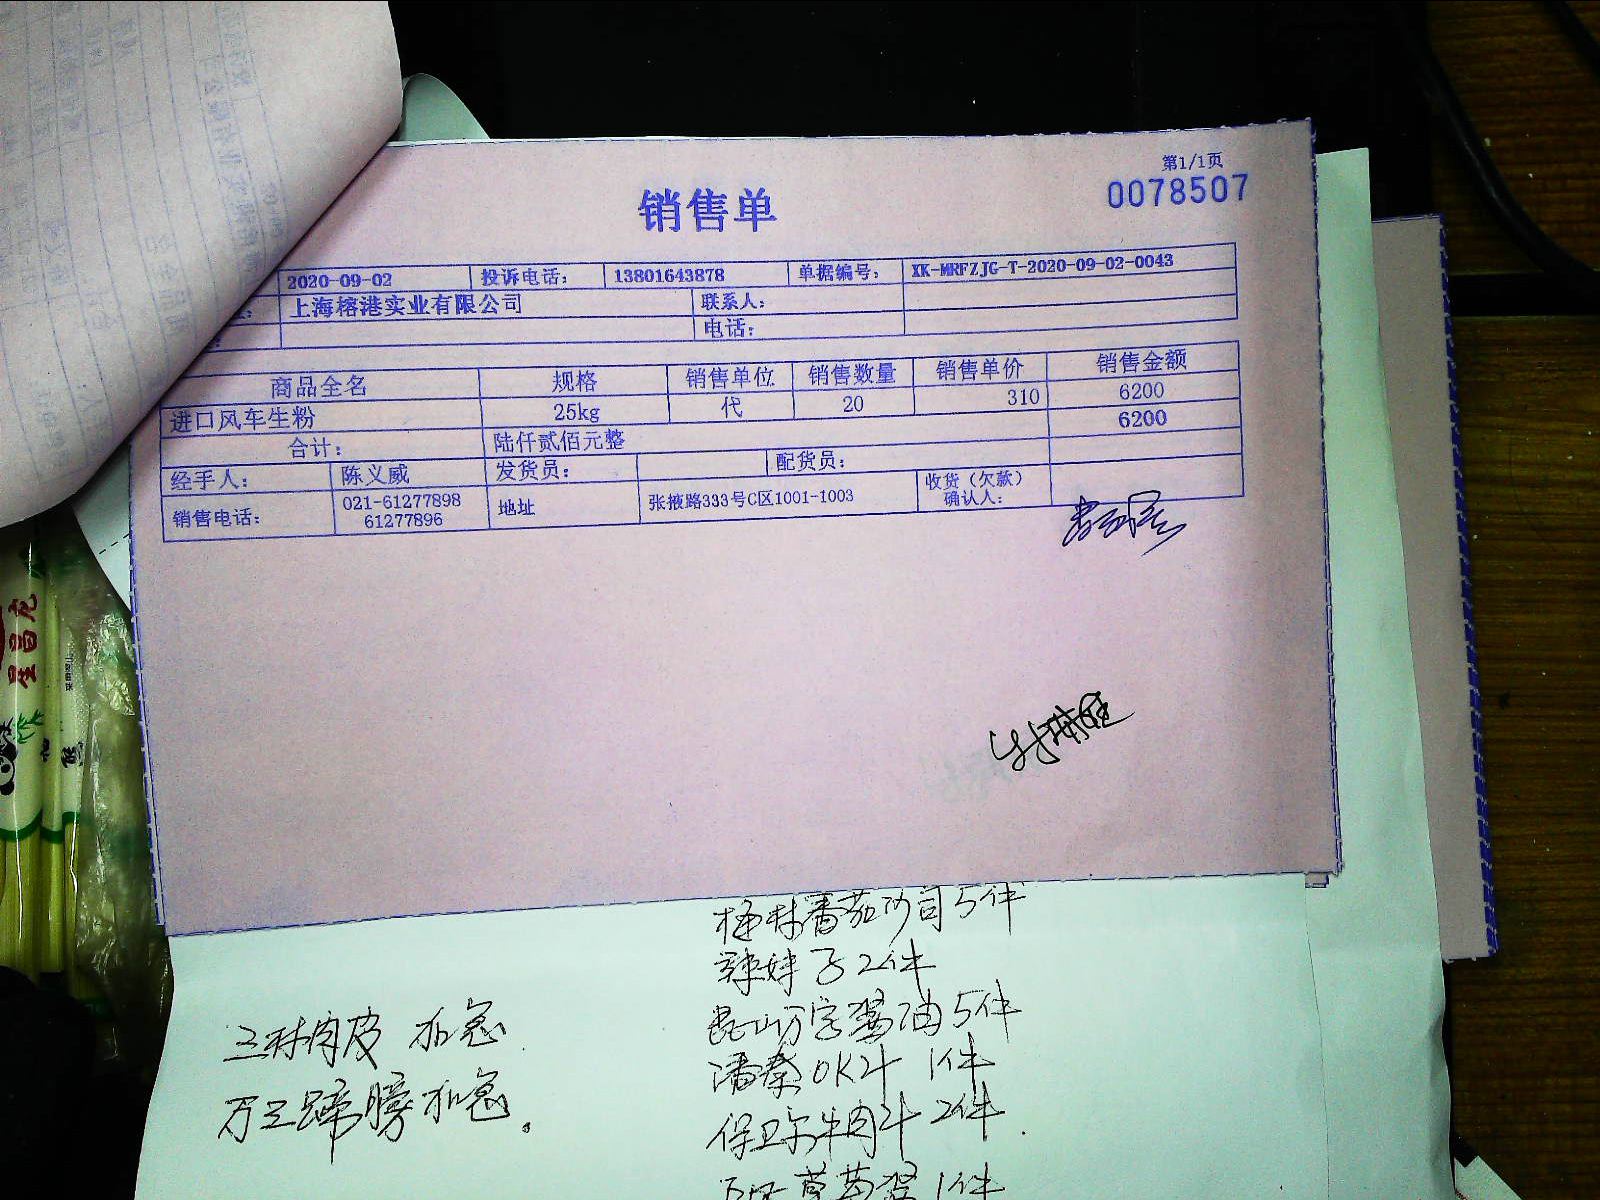 第1/1页
0078507
销售单
2020-09-02 投诉电话： 13801643878 单据编号： XK-MRFZJG-T-2020-09-02-0043
上海榕港实业有限公司 联系人：
电话：
商品全名 规格 销售单位 销售数量 销售单价 销售金额
进口风车生粉 25kg 代 20 310 6200
合计： 陆仟贰佰元整 6200
经手人： 陈义威 发货员： 配货员：
销售电话： 021-61277898 地址 张掖路333号C区1001-1003 收货（欠款）
61277896 确认人：
梅林番茄沙司5件
辣妹子2件
昆山万字酱油5件
潘泰OK汁 1件
保卫尔牛肉汁2件
草莓酱1件
三林肉皮 加急
万三蹄膀加急。